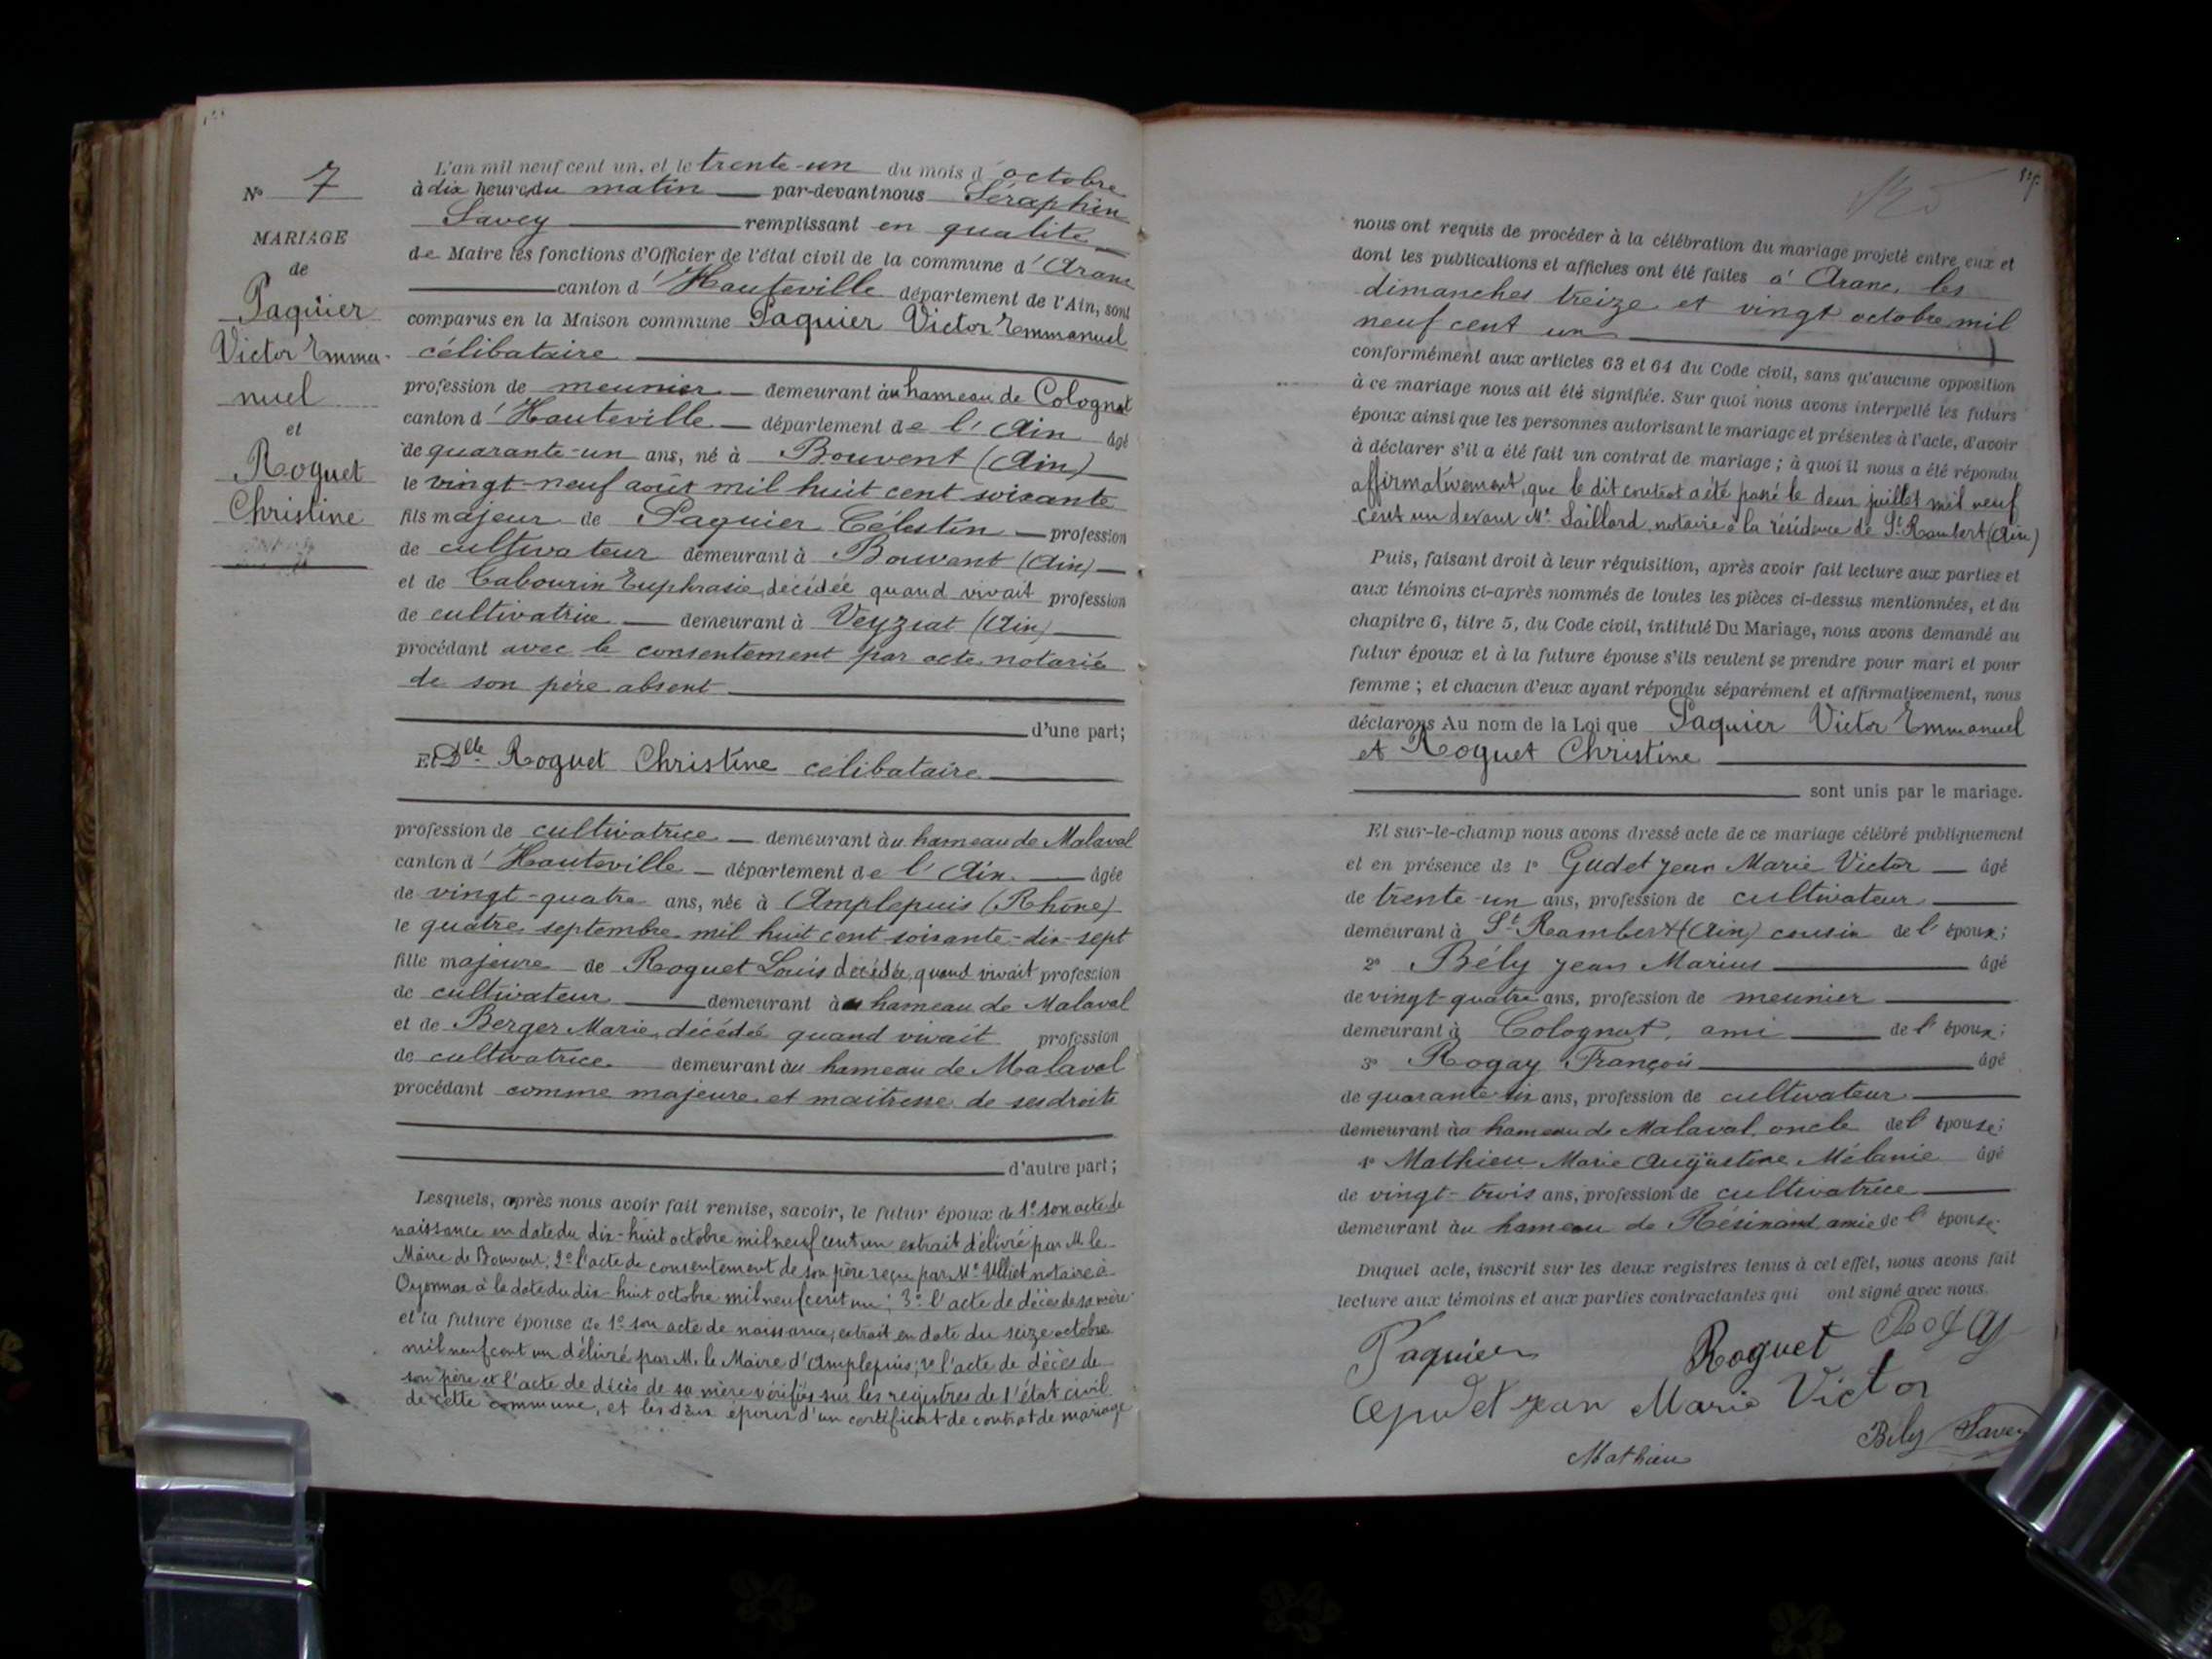 N° 7
MARIAGE
de
Paquier
Victor Emma-
nuel
et
Roguet
Christine
L'an mil neuf cent un, et le trente-un du mois d'octobre
à dix heures du matin — par-devant nous Séraphin
Savey — remplissant en qualité
de Maire les fonctions d'Officier de l'état civil de la commune d'Aranc
— canton d'Hauteville département de l'Ain, sont
comparus en la Maison commune Paquier Victor Emmanuel
célibataire
profession de meunier — demeurant au hameau de Colognat
canton d'Hauteville — département de l'Ain âgé
de quarante-un ans, né à Bouvent (Ain)
le vingt-neuf août mil huit cent soixante
fils majeur de Paquier Célestin — profession
de cultivateur demeurant à Bouvent (Ain) —
et de Cabourin Euphrasie, décédée quand vivait profession
de cultivatrice — demeurant à Veyziat (Ain)
procédant avec le consentement par acte notarié
de son père absent
d'une part;
Et Dlle Roguet Christine célibataire
profession de cultivatrice — demeurant au hameau de Malaval
canton d'Hauteville — département de l'Ain — âgée
de vingt-quatre ans, née à Amplepuis (Rhône)
le quatre septembre mil huit cent soixante-dix-sept
fille majeure de Roguet Louis décédé, quand vivait profession
de cultivateur — demeurant au hameau de Malaval
et de Berger Marie, décédée quand vivait profession
de cultivatrice demeurant au hameau de Malaval
procédant comme majeure et maitresse de ses droits
d'autre part;
Lesquels, après nous avoir fait remise, savoir, le futur époux de 1° son acte de
naissance en date du dix-huit octobre mil neuf cent un extrait délivré par M le
Maire de Bouvent; 2° l'acte de consentement de son père reçu par Me Ulliet notaire à
Oyonnax à la date du dix-huit octobre mil neuf cent un; 3° l'acte de décès de sa mère
et la future épouse de 1° son acte de naissance, extrait en date du seize octobre
mil neuf cent un délivré par M. le Maire d'Amplepuis; 2° l'acte de décès de
son père et l'acte de décès de sa mère vérifiés sur les registres de l'état civil
de cette commune, et les deux époux d'un certificat de contrat de mariage
nous ont requis de procéder à la célébration du mariage projeté entre eux et
dont les publications et affiches ont été faites à Aranc, les
dimanches treize et vingt octobre mil
neuf cent un
conformément aux articles 63 et 64 du Code civil, sans qu'aucune opposition
à ce mariage nous ait été signifiée. Sur quoi nous avons interpellé les futurs
époux ainsi que les personnes autorisant le mariage et présentes à l'acte, d'avoir
à déclarer s'il a été fait un contrat de mariage; à quoi il nous a été répondu
affirmativement, que le dit contrat a été passé le deux juillet mil neuf
cent un devant Me Saillard notaire à la résidence de St Rambert (Ain)
Puis, faisant droit à leur réquisition, après avoir fait lecture aux parties et
aux témoins ci-après nommés de toutes les pièces ci-dessus mentionnées, et du
chapitre 6, titre 5, du Code civil, intitulé Du Mariage, nous avons demandé au
futur époux et à la future épouse s'ils veulent se prendre pour mari et pour
femme; et chacun d'eux ayant répondu séparément et affirmativement, nous
déclarons Au nom de la Loi que Paquier Victor Emmanuel
et Roguet Christine
sont unis par le mariage.
Et sur-le-champ nous avons dressé acte de ce mariage célébré publiquement
et en présence de 1° Gudet Jean Marie Victor — âgé
de trente-un ans, profession de cultivateur
demeurant à St Rambert (Ain) cousin de l'époux;
2° Bély Jean Marius — âgé
de vingt-quatre ans, profession de meunier
demeurant à Colognat, ami — de l'époux;
3° Rogay François — âgé
de quarante-six ans, profession de cultivateur
demeurant au hameau de Malaval, oncle de l'épouse;
4° Mathieu Marie Augustine Mélanie âgé
de vingt-trois ans, profession de cultivatrice
demeurant au hameau de Résinand amie de l'épouse.
Duquel acte, inscrit sur les deux registres tenus à cet effet, nous avons fait
lecture aux témoins et aux parties contractantes qui ont signé avec nous.
Paquier Roguet Rogay
Gudet Jean Marie Victor
Bély Savey
Mathieu